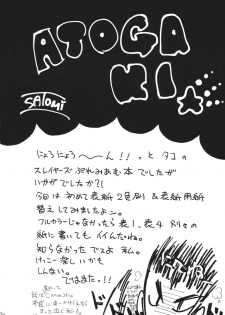 ATOGA
KI
SATOMI
にょろにょろ〜〜ん!!っと タコの
スレイヤーズ ぷれみあむ 本でしたが
いかがでしたか?!
今回は 初めて 表紙2色刷り & 表紙用紙
替えしてみましたよニ。
フルカラーじゃなかったら 表1、表4 別々の
紙に書いても イイんだいねっ。
知らなかったでスよ 私。
けっこー楽しいかも
しんない。
ではまた。!!